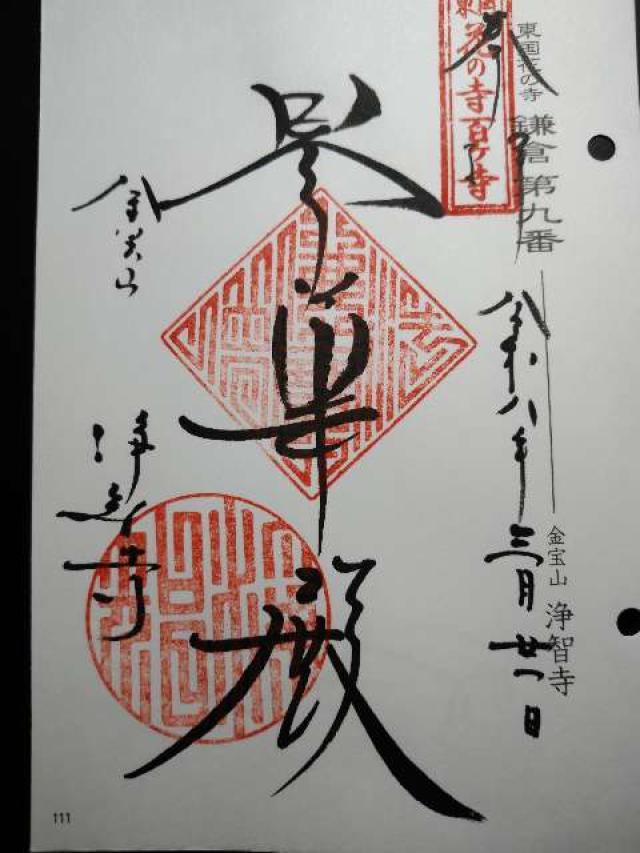 東国花の寺 鎌倉第九番
金宝山 浄智寺
東国
花の寺百ヶ寺
奉
令和八年三月廿一日
曇華殿
金宝山
浄智寺
111